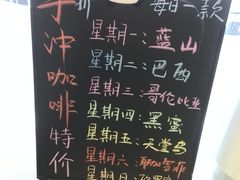 手冲咖啡特价
折 每日一款
星期一:蓝山
星期二:巴西
星期三:哥伦比亚
星期四:黑蜜
星期五:天堂鸟
星期六:耶加雪菲
星期日: